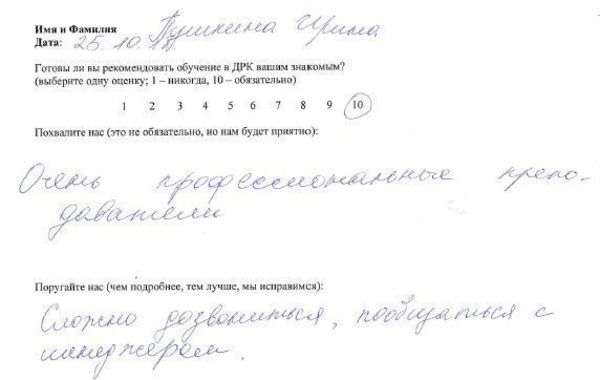 Имя и Фамилия Пушкина Ирина
Дата: 25.10.
Готовы ли вы рекомендовать обучение в ДРК вашим знакомым?
(выберите одну оценку; 1 – никогда, 10 – обязательно)
1 2 3 4 5 6 7 8 9 10
Похвалите нас (это не обязательно, но нам будет приятно):
Очень профессиональные препо-
даватели
Поругайте нас (чем подробнее, тем лучше, мы исправимся):
Сложно дозвониться, пообщаться с
менеджером.